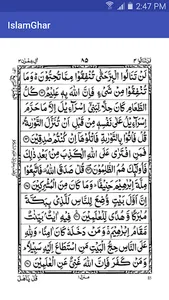 2:47 PM
IslamGhar
٨٥
لَنْ تَنَالُوا الْبِرَّ حَتّٰى تُنْفِقُوْا مِمَّا تُحِبُّوْنَ وَمَا
تُنْفِقُوْا مِنْ شَيْءٍ فَاِنَّ اللهَ بِهٖ عَلِيْمٌ كُلُّ
الطَّعَامِ كَانَ حِلًّا لِّبَنِيْٓ اِسْرَآءِيْلَ اِلَّا مَا حَرَّمَ
اِسْرَآءِيْلُ عَلٰى نَفْسِهٖ مِنْ قَبْلِ اَنْ تُنَزَّلَ التَّوْرٰىةُ
قُلْ فَأْتُوْا بِالتَّوْرٰىةِ فَاتْلُوْهَآ اِنْ كُنْتُمْ صٰدِقِيْنَ
فَمَنِ افْتَرٰى عَلَى اللهِ الْكَذِبَ مِنْ بَعْدِ ذٰلِكَ
فَاُولٰٓئِكَ هُمُ الظّٰلِمُوْنَ قُلْ صَدَقَ اللهُ فَاتَّبِعُوْا
مِلَّةَ اِبْرٰهِيْمَ حَنِيْفًا وَمَا كَانَ مِنَ الْمُشْرِكِيْنَ
اِنَّ اَوَّلَ بَيْتٍ وُّضِعَ لِلنَّاسِ لَلَّذِيْ بِبَكَّةَ
مُبٰرَكًا وَّهُدًى لِّلْعٰلَمِيْنَ فِيْهِ اٰيٰتٌ بَيِّنٰتٌ
مَّقَامُ اِبْرٰهِيْمَ وَمَنْ دَخَلَهٗ كَانَ اٰمِنًا وَلِلّٰهِ
عَلَى النَّاسِ حِجُّ الْبَيْتِ مَنِ اسْتَطَاعَ اِلَيْهِ سَبِيْلًا
وَمَنْ كَفَرَ فَاِنَّ اللهَ غَنِيٌّ عَنِ الْعٰلَمِيْنَ